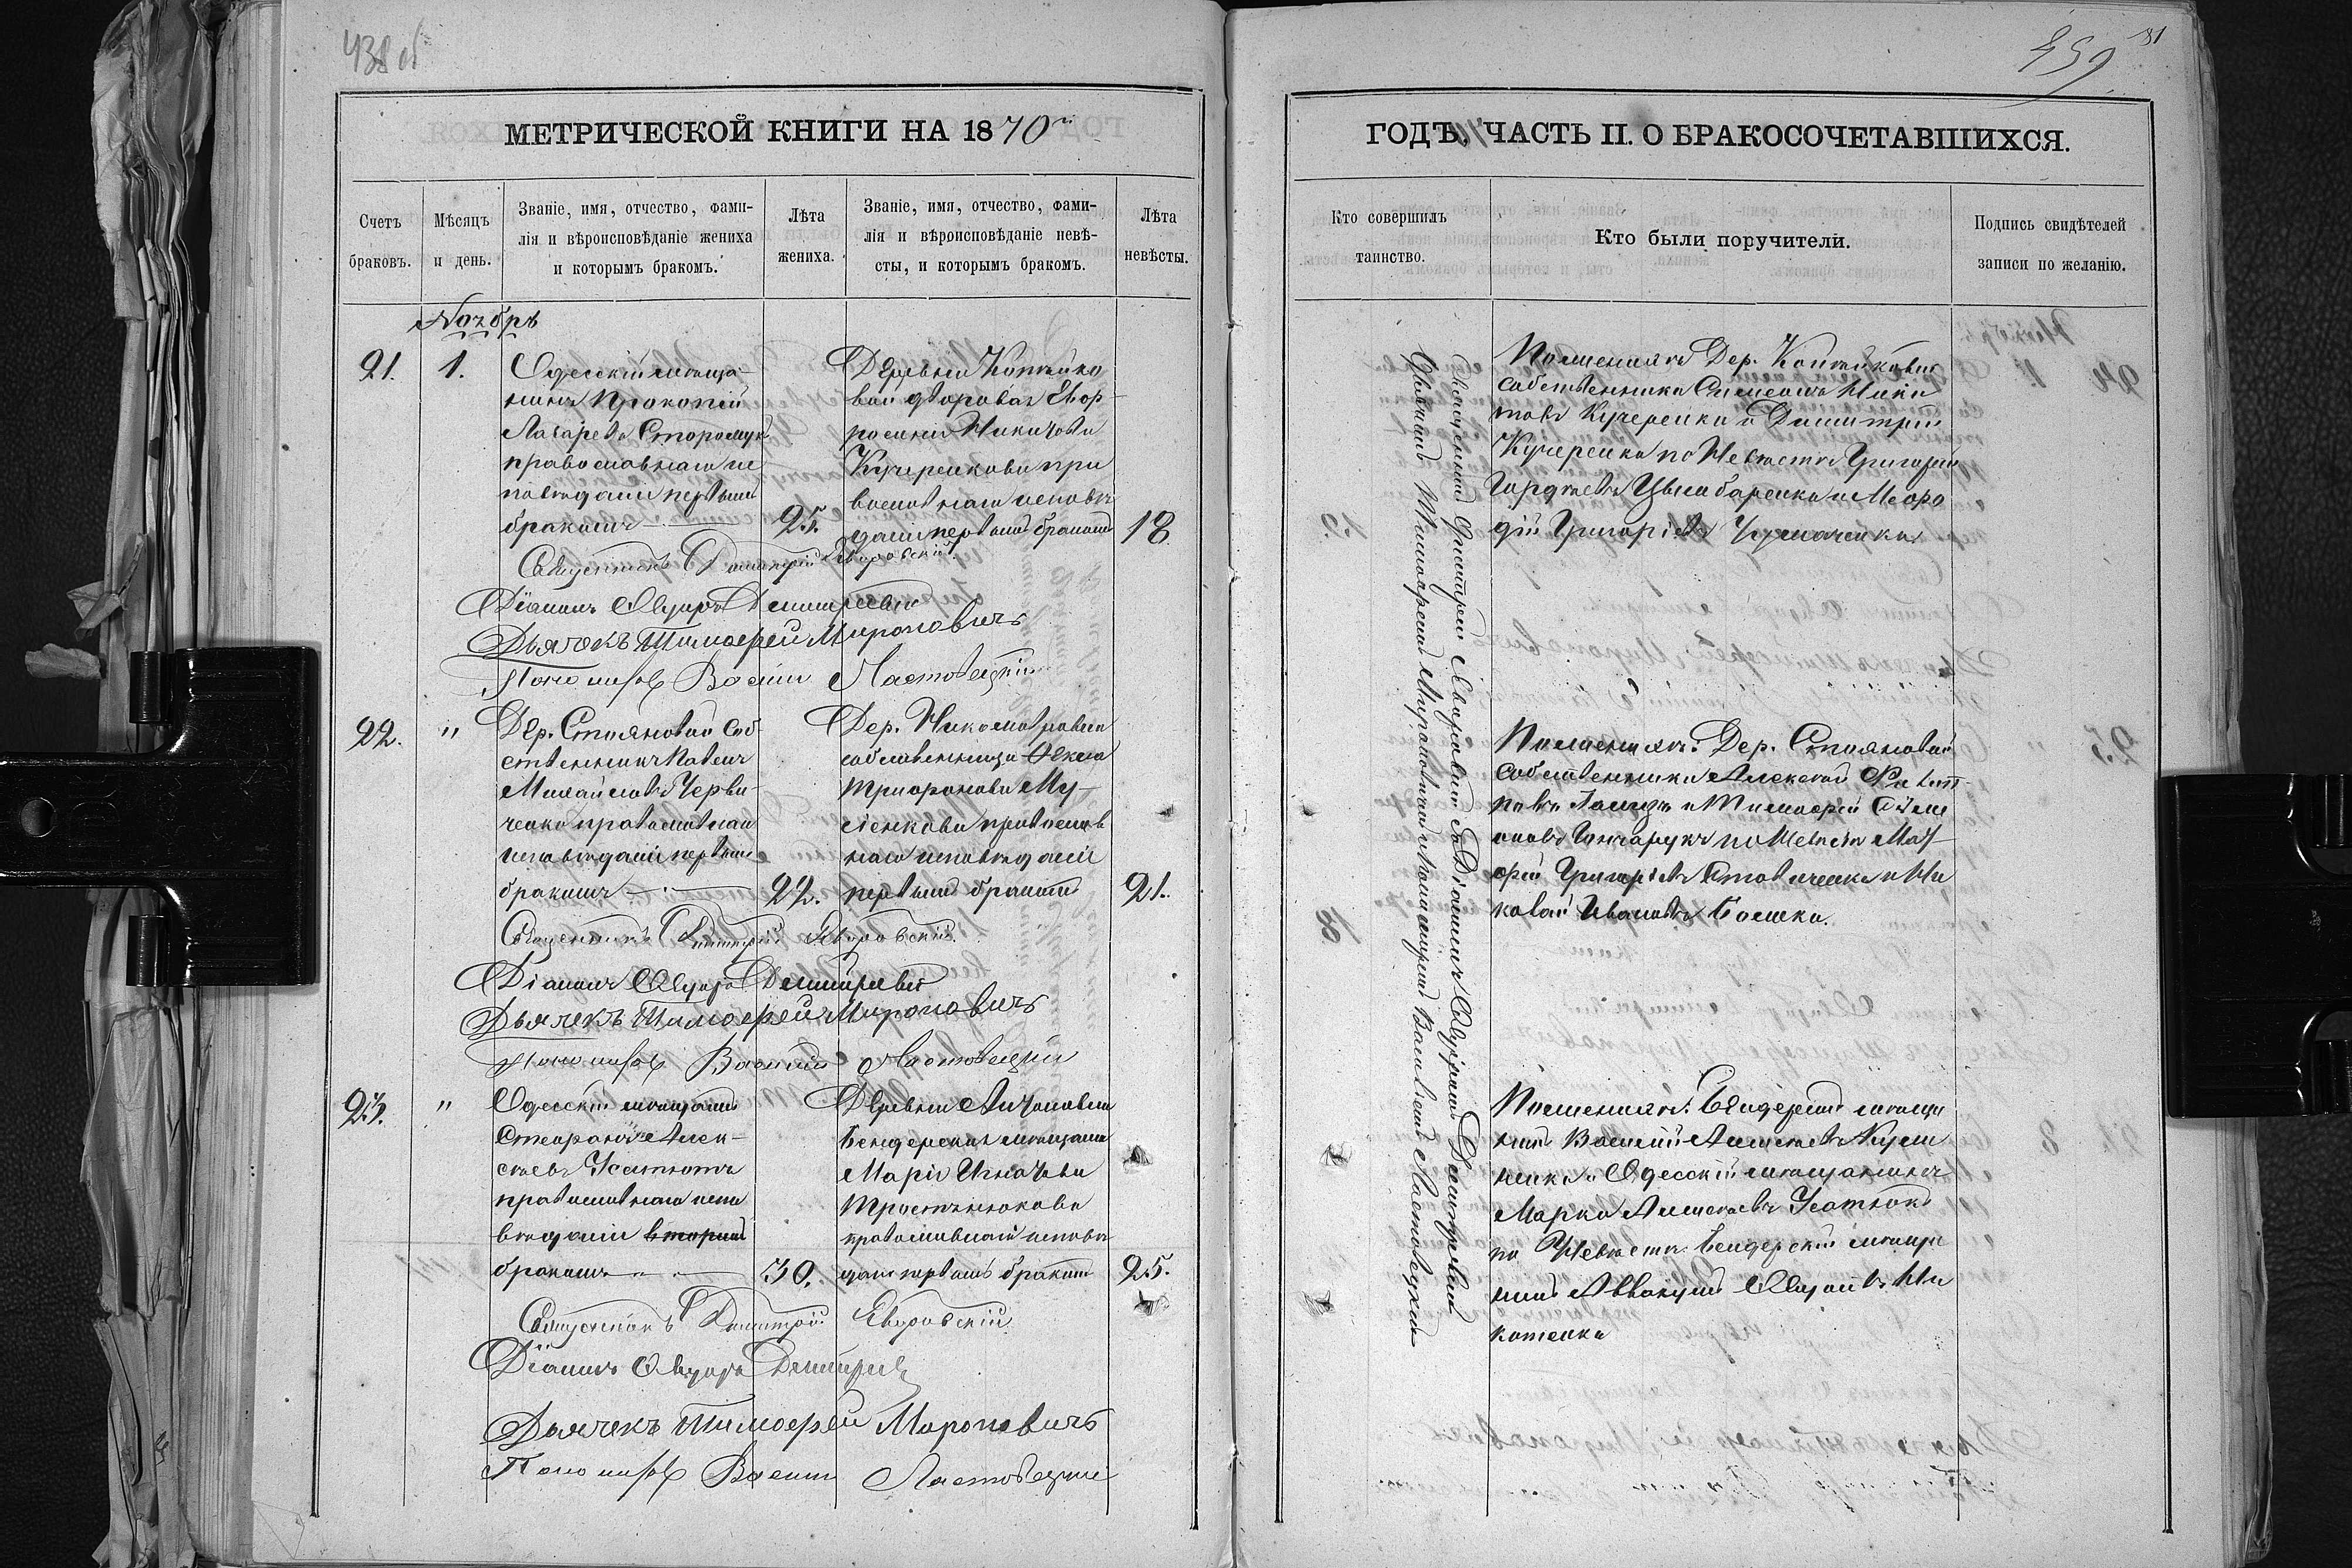 438 об
МЕТРИЧЕСКОЙ КНИГИ НА 1870
Счетъ браковъ.
Мѣсяцъ и день.
Званіе, имя, отчество, фами-
лія и вѣроисповѣданіе жениха
и которымъ бракомъ.
Лѣта жениха.
Званіе, имя, отчество, фами-
лія и вѣроисповѣданіе невѣ-
сты, и которымъ бракомъ.
Лѣта невѣсты.
Ноябрь
21.
1.
Одесскій мѣща-
нинъ Прокопій
Лазаревъ
православнаго ис
повѣданія первымъ
бракомъ
25.
Деревни
вой дворовая Евф-
росинія Никитова
Кучеренкова пра
вославнаго исповѣ
данія первымъ бракомъ
18
Священникъ Димитрій Яворовскій.
Дьячекъ Тимофей Мироновичъ
Пономарь Василій Ластовецкій
22.
"
Дер. Стояновой соб
ственникъ Павелъ
Михайловъ Черви-
ченко православнаго
исповѣданія первымъ
бракомъ
22.
Дер.
собственница Ѳекла
Трифонова Му-
сіенкова православ
наго исповѣданія
первымъ бракомъ
21.
Священникъ Димитрій Яворовскій.
Дьячекъ Тимофей Мироновичъ
Пономарь Василій Ластовецкій
23.
"
Одесскій мѣщанинъ
Стефанъ Алек-
сѣевъ Усатюкъ
православнаго испо
вѣданія вторымъ
бракомъ
30.
Деревни Антоновки
Бендерская мѣщанка
Марія Игнатова
Тростянюкова
православнаго исповѣ
данія первымъ бракомъ
25.
Священникъ Димитрій Яворовскій
Дьячекъ Тимофей Мироновичъ
Пономарь Василій Ластовецкій
459
81
ГОДЪ. ЧАСТЬ II. О БРАКОСОЧЕТАВШИХСЯ.
Кто совершилъ таинство.
Кто были поручители.
Подпись свидѣтелей записи по желанію.
Священникъ Димитрій Яворовскій съ Діакономъ
Тимофеемъ Мироновичемъ и Пономаремъ Василіемъ Ластовецкимъ
По женихѣ Дер.
собственники Симеонъ Ники
товъ Кучеренко и Димитрій
Кучеренко по Невѣстѣ Григорій
Гордѣевъ Цымбаренко и Меѳо
дій Григоріевъ Чумаченко
По женихѣ: Дер. Стояновой
собственники Алексѣй
и Тимофей
Гончарукъ по Невѣстѣ Мат
фей Григоріевъ и Ни
колай Ивановъ Бошко.
По женихѣ: Бендерскій мѣща
нинъ Василій Алексѣевъ
и Одесскій мѣщанинъ
Марко Алексѣевъ Усатюкъ
по Невѣстѣ: Бендерскій мѣща
нинъ Аввакумъ Ни
котенко